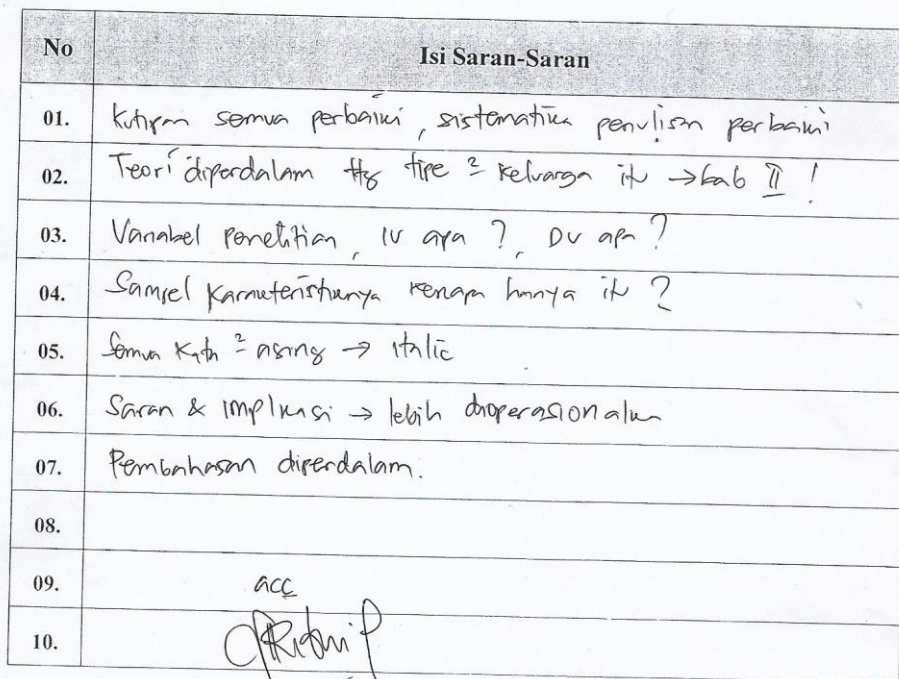 No Isi Saran-Saran
01. Kutipan semua perbaiki, sistematika penulisan perbaiki
02. Teori diperdalam ttg tipe ² keluarga itu → bab II !
03. Variabel penelitian, IV apa ?, DV apa ?
04. Sampel karakteristiknya kenapa hanya itu ?
05. Semua kata ² asing → italic
06. Saran & implikasi → lebih dioperasionalkan
07. Pembahasan diperdalam.
08.
09. acc
10.